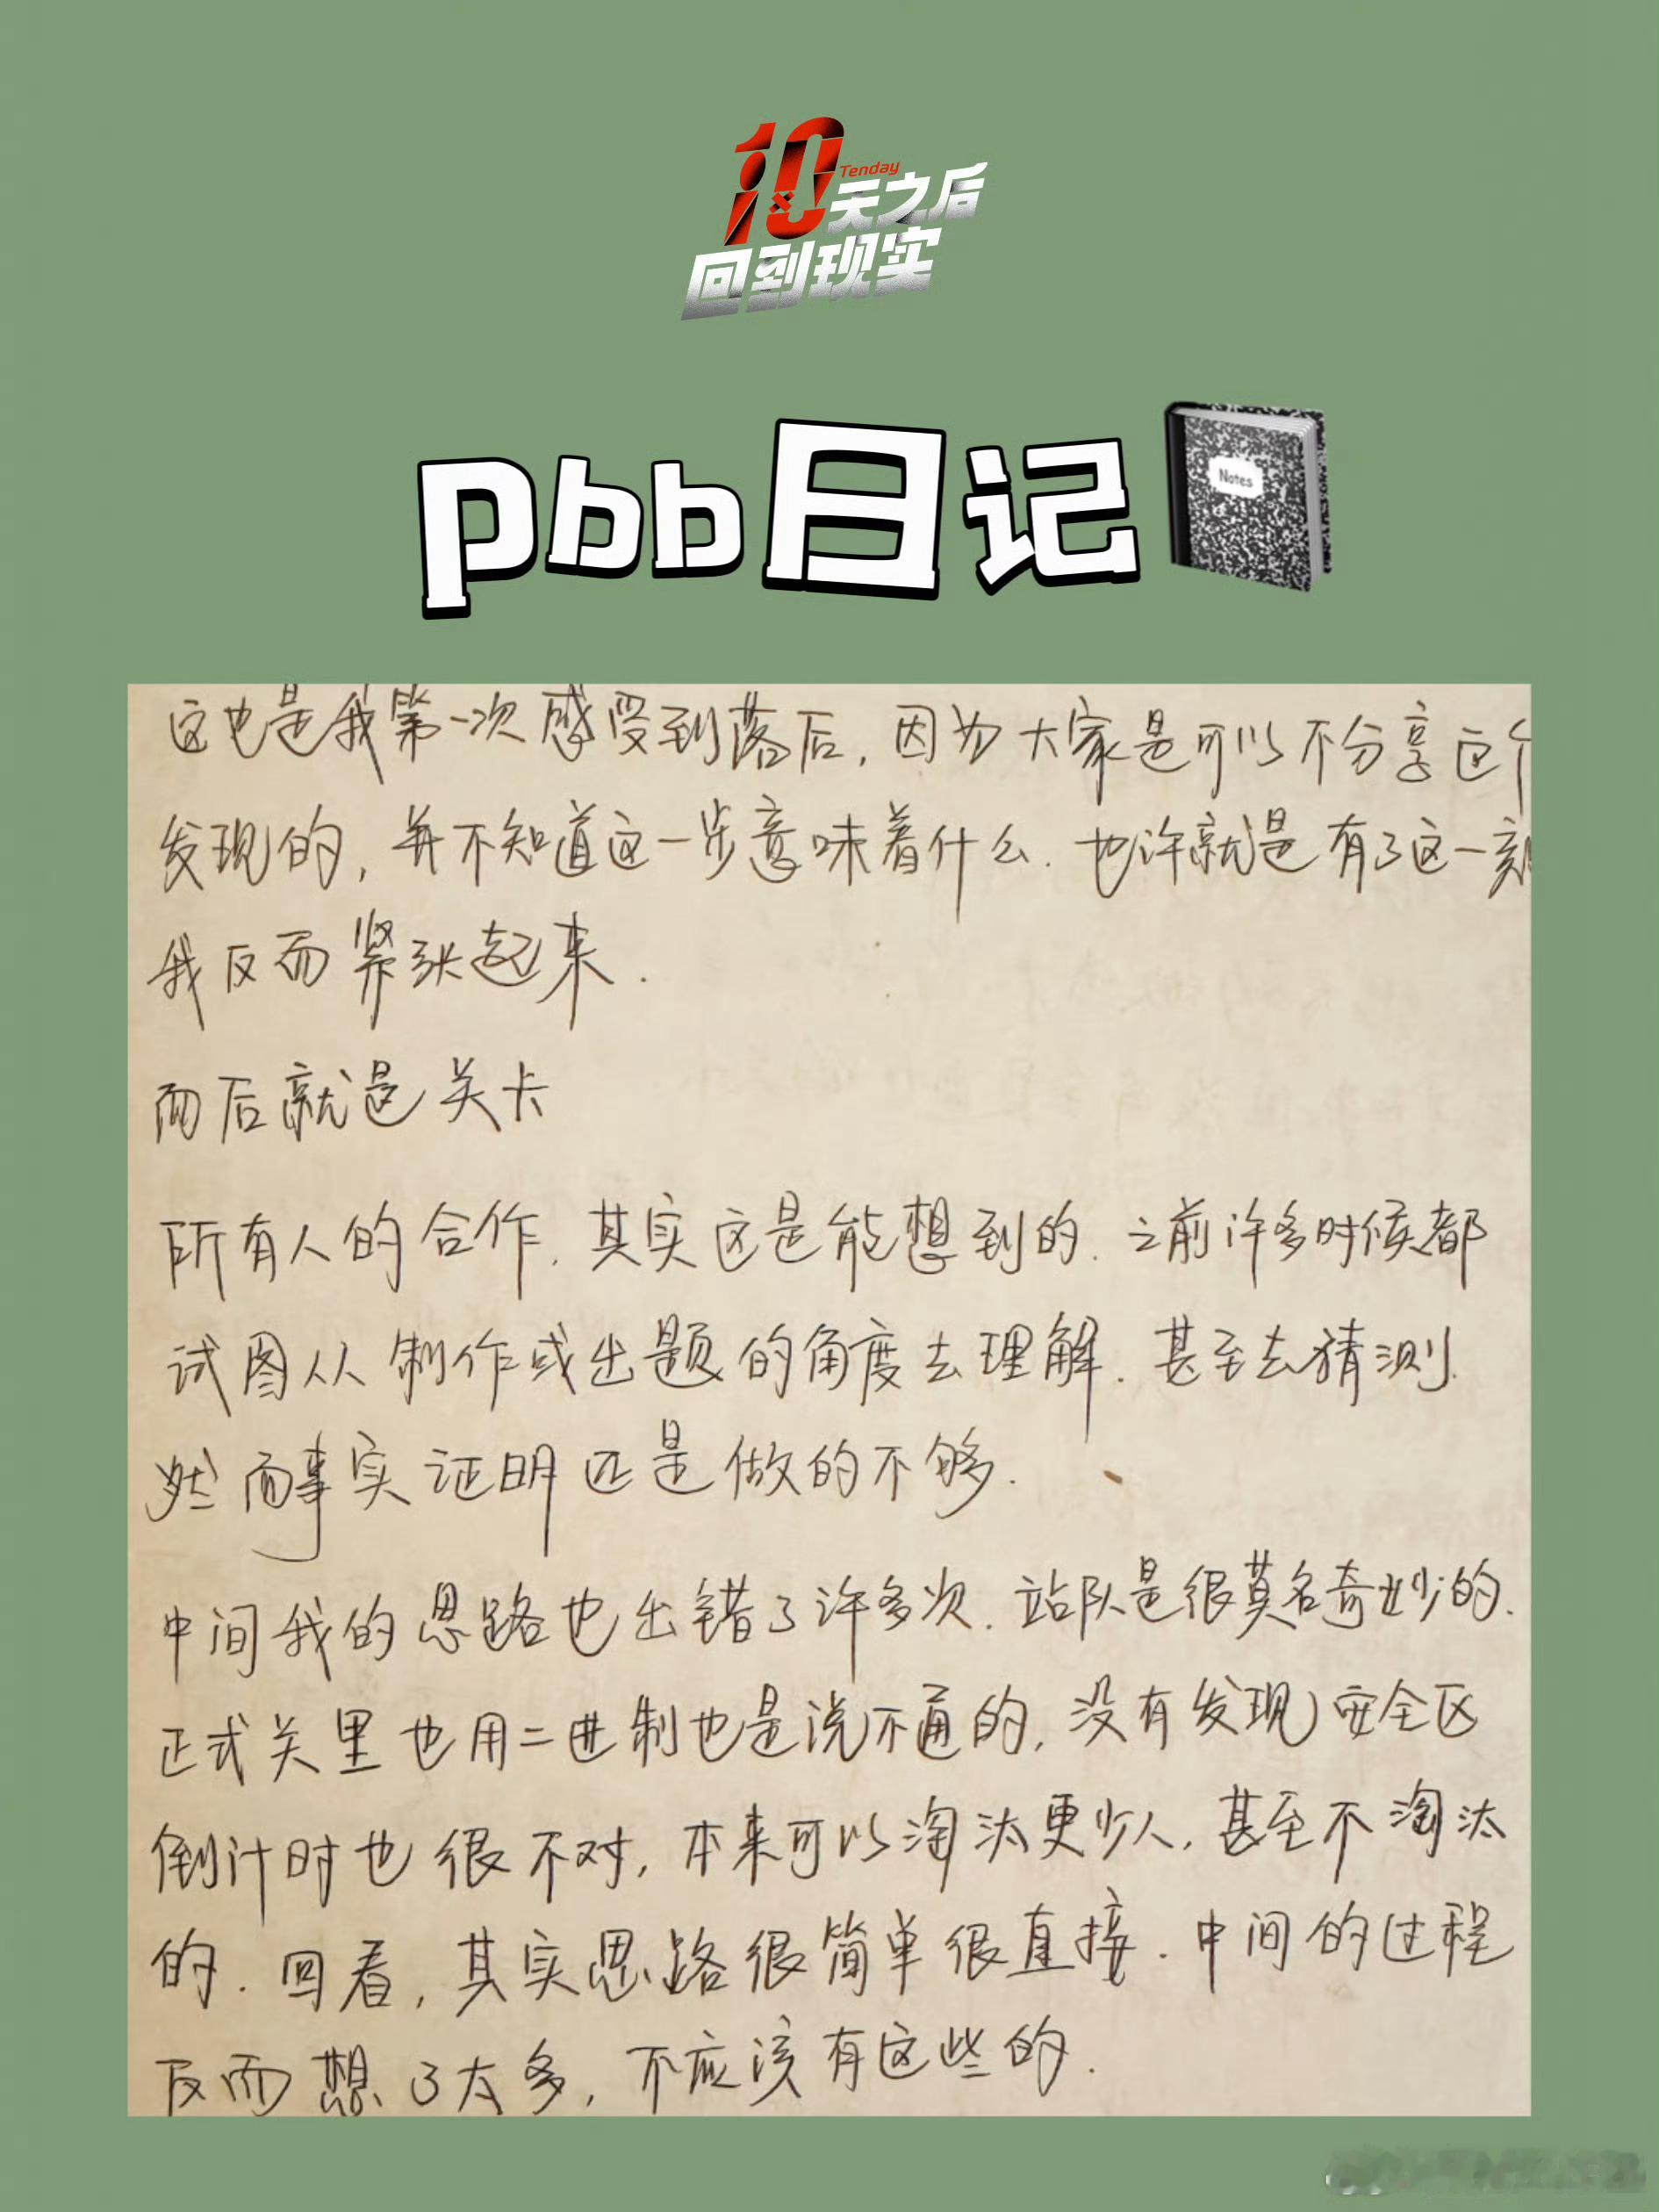 10
Tenday
天之后
回到现实
pbb日记
Notes
这也是我第一次感受到落后，因为大家是可以不分享这个
发现的，并不知道这一步意味着什么．也许就是有了这一刻
我反而紧张起来．
而后就是关卡
所有人的合作．其实这是能想到的．之前许多时候都
试图从制作或出题的角度去理解．甚至去猜测．
然而事实证明还是做的不够．
中间我的思路也出错了许多次．站队是很莫名奇妙的．
正式关里也用二进制也是说不通的，没有发现安全区
倒计时也很不对，本来可以淘汰更少人，甚至不淘汰
的．回看，其实思路很简单很直接．中间的过程
反而想了太多，不应该有这些的．